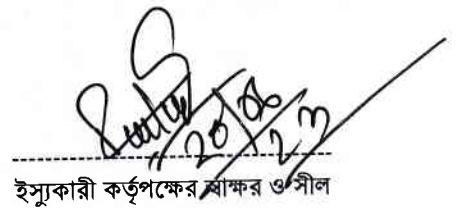 20/08/23
ইস্যুকারী কর্তৃপক্ষের স্বাক্ষর ও সীল